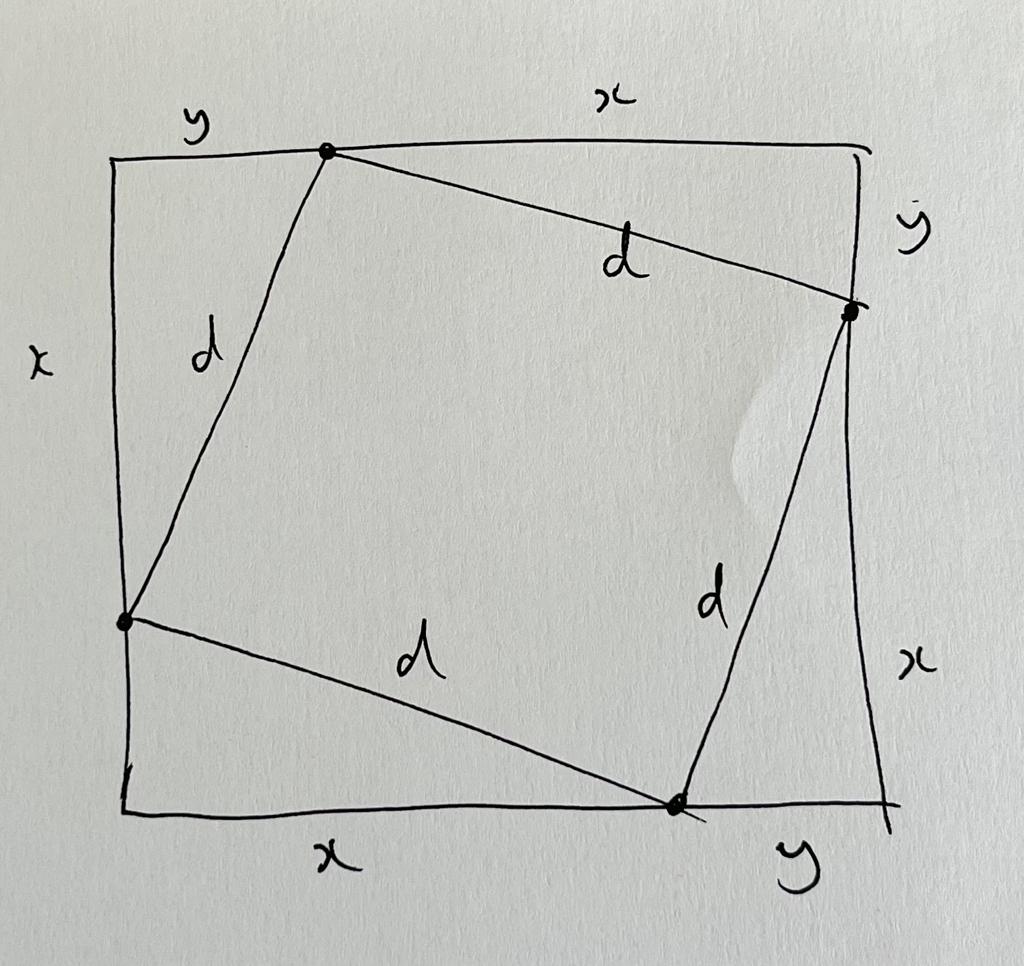 y x
y
d
d
x
d
d
x
x y